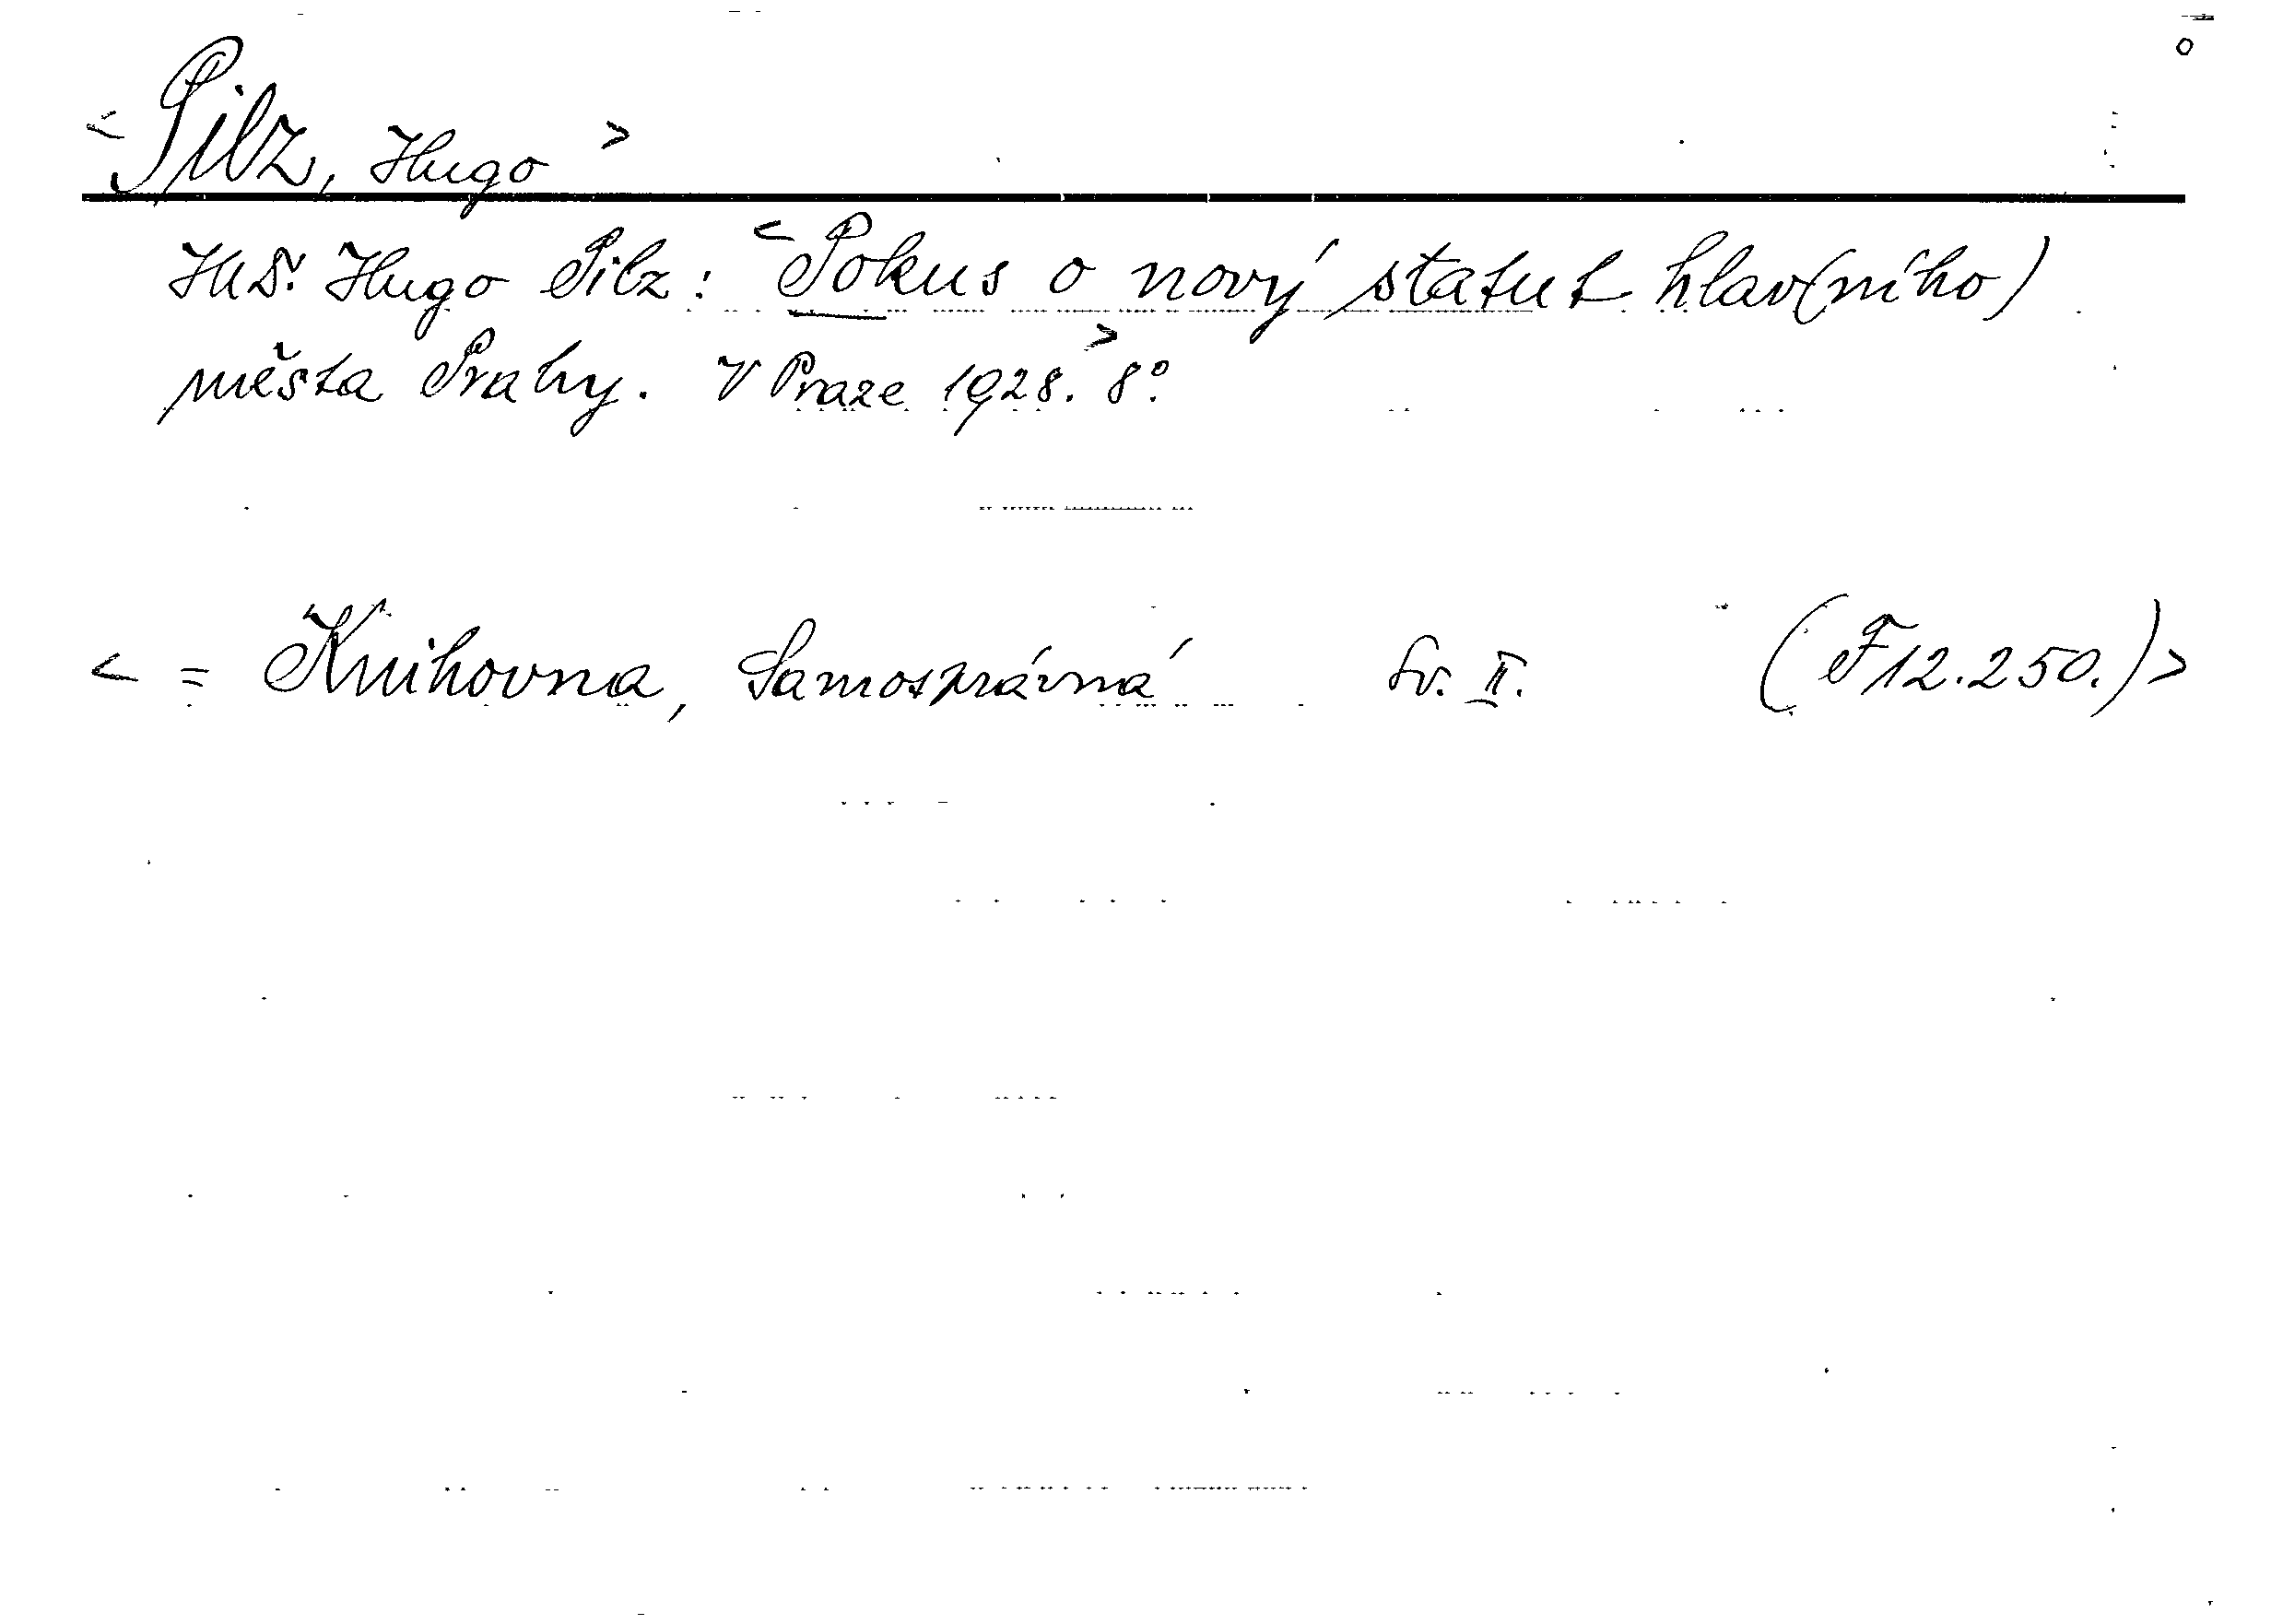 <Pilz, Hugo>
JUDr. Hugo Pilz: <Pokus o nový statut hlav(ního)
města Prahy. V Praze 1928.> 8°.
< = Knihovna, Samosprávná Sv. II. (F 12.250.)>